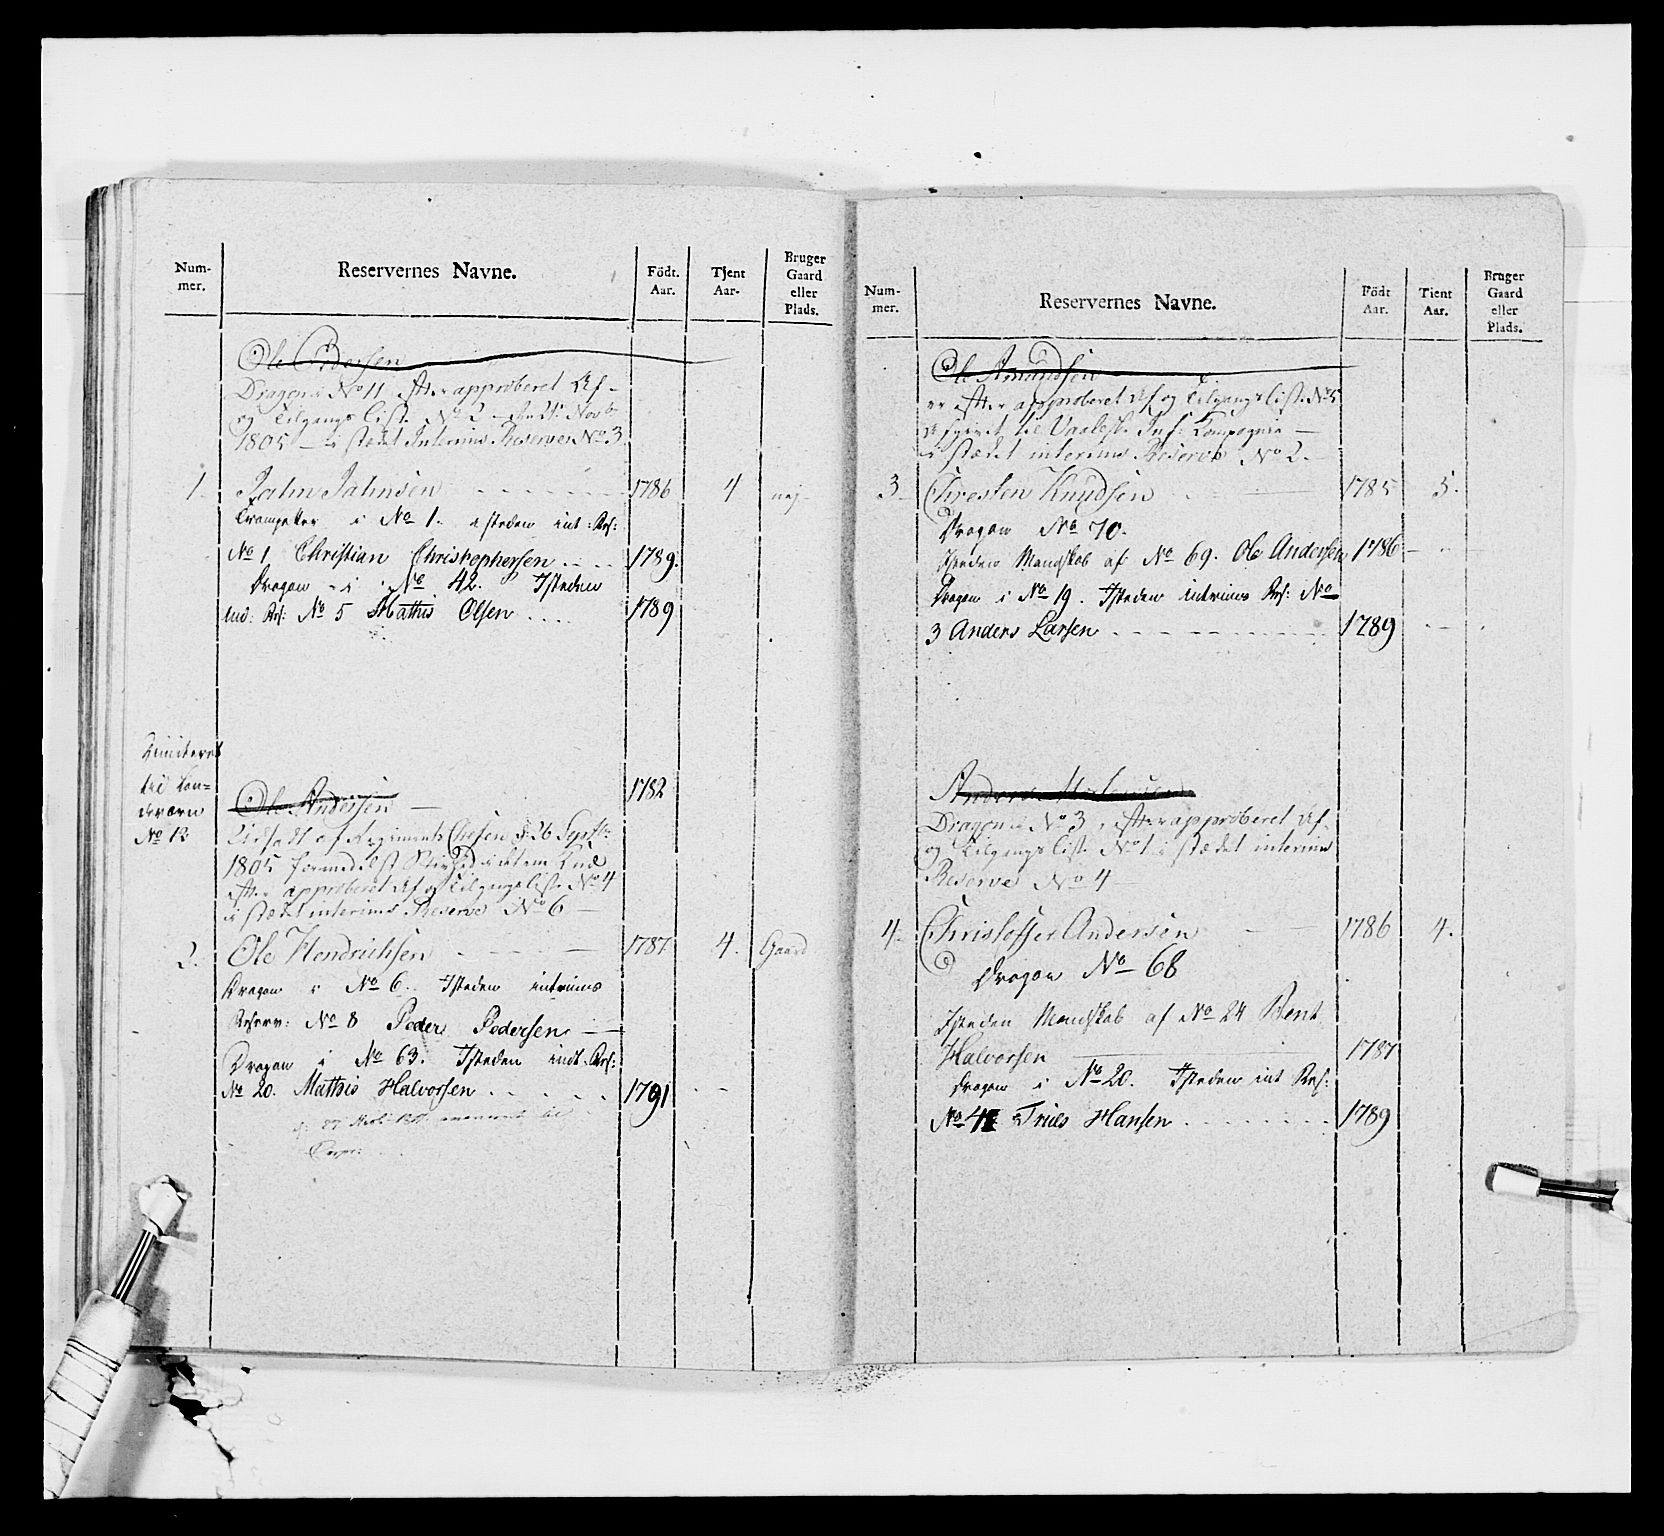 Num-
mer.
Reservernes Navne.
Födt.
Aar.
Tjent
Aar-
Bruger
Gaard
eller
Plads.
Ole Pedersen
Dragon i No 11 efter approberet Af-
og Tilgangs List No 2 21 Novb
1805 - i stædet Interims Reserve No 3
1. Jahn Jahnsen 1786 4 nej
Trompetter i No 1. isteden int: Res:
No 1 Christian Christophersen 1789.
Dragon i No 42. Isteden
ind: Res: No 5 Mathis Olsen 1789
til Lan-
deværn
No 12
Ole Andersen 1782
af Regiments Chefen d: 26 Septbr
1805 formedelst Stivhed i det ene Knæ
efter approberet Af og Tilgangsliste No 4
i stædet interims Reserve No 6
2. Ole Hendrichsen 1787 4. Gaard
Dragon i No 6. Isteden intrims
Reserv: No 8 Peder Pedersen
Dragon i No 63. Isteden indt. Res:
No 20. Mathis Halvorsen 1791
Num-
mer.
Reservernes Navne.
Födt
Aar.
Tient
Aar.
Bruger
Gaard
eller
Plads.
Ole Amundsen
er efter approberet Af og Tilgangs List No 5
til Vaalerske Inf: Compagnie
i stædet interims Reserve No 2.
3. Christen Knudsen 1785 5.
Dragon No 70.
Isteden Mandskab af No 69. Ole Andersen 1786
Dragon i No 19. Isteden intrims Res: No
3 Anders Larsen 1789
Anders
Dragon i No 3, efter approberet Af-
og Tilgangs List No 1 i stædet interims
Reserve No 4
4. Christoffer Andersen 1786 4.
Dragon No 68
Isteden Mandskab af No 24 Bent
Halvorsen 1787
Dragon i No 20. Isteden int Res:
No 4 Hansen 1789